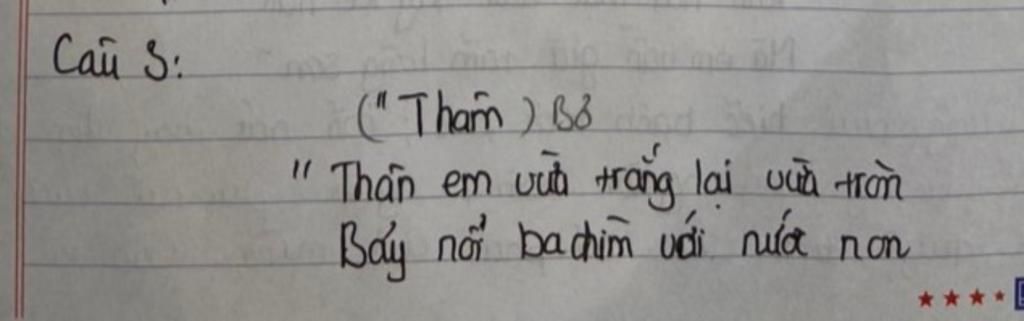 Câu 3:
("Thâm) Bỏ
" Thân em vừa trắng lại vừa tròn
Bảy nổi ba chìm với nước non